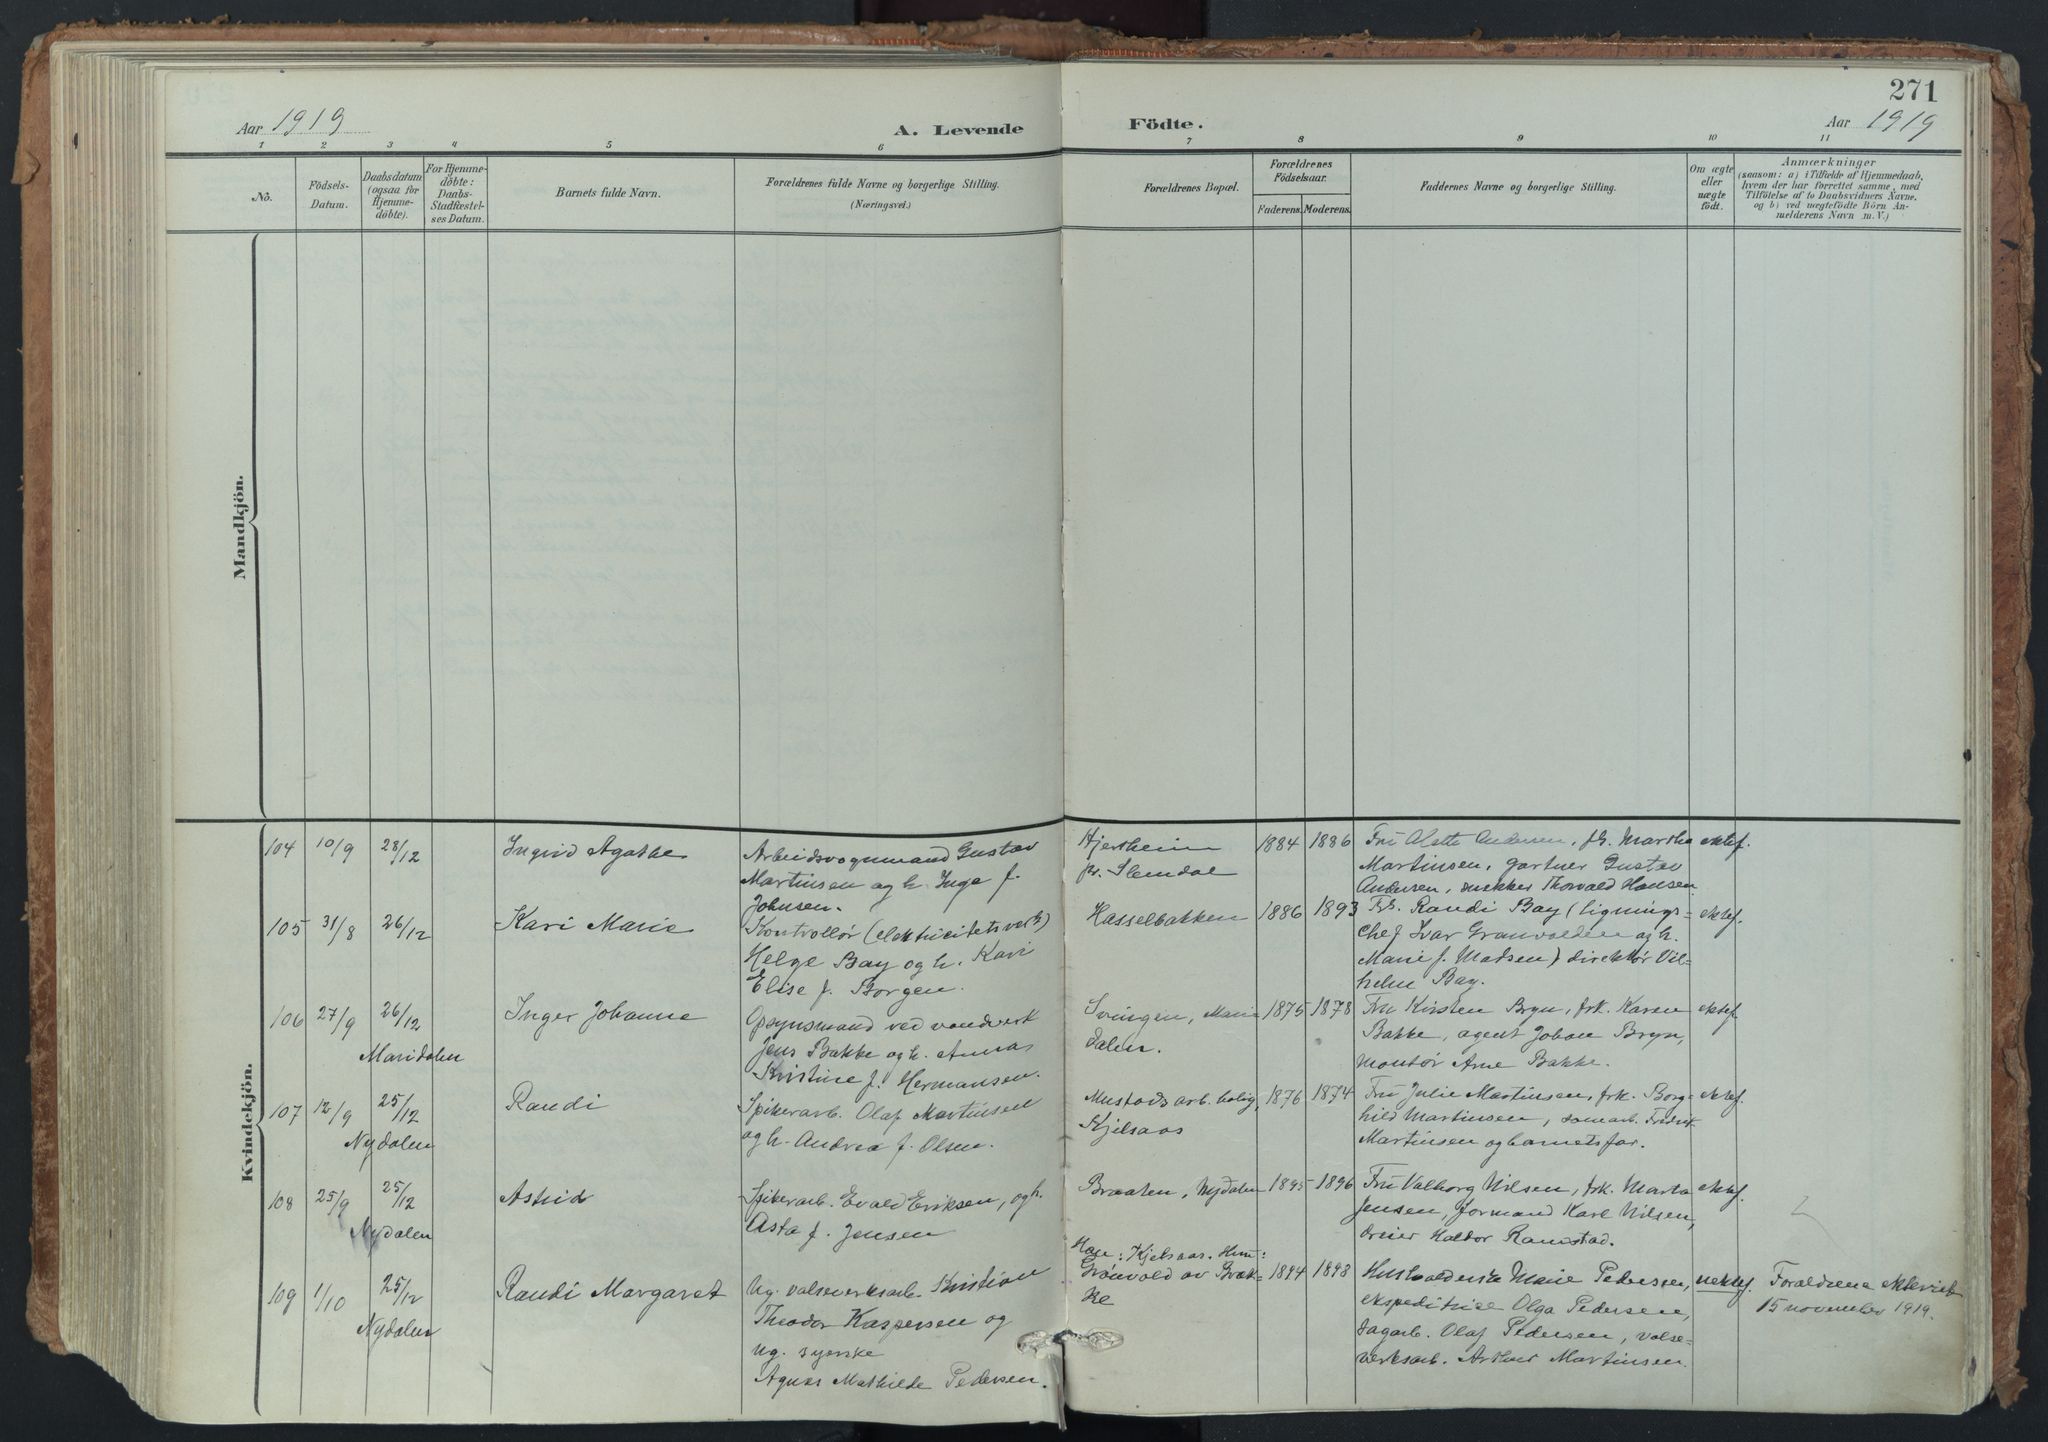 271
Aar 1919
A. Levende
Födte.
Aar 1919
1 2 3 4 5 6 7 8 9 10 11
No.
Födsels-
Datum.
Daabsdatum
(ogsaa for
Hjemme-
döbte).
For Hjemme-
döbte:
Daabs-
Stadfestel-
ses Datum.
Barnets fulde Navn.
Forældrenes fulde Navne og borgerlige Stilling.
(Næringsvei.)
Forældrenes Bopæl.
Forældrenes
Födselsaar.
Faderens. Moderens.
Faddernes Navne og borgerlige Stilling.
Om ægte
eller
uægte
födt.
Anmærkninger
(saasom: a) i Tilfælde af Hjemmedaab,
hvem der har forrettet samme, med
Tilföielse af to Daabsvidners Navne,
og b) ved uægtefödte Börn An-
melderens Navn m. V.)
Mandkjön.
Kvindekjön.
104 10/9 28/12
Ingrid Agathe
Arbeidsvognmand Gustav
Martinsen og h. Inga f.
Johnsen.
Hjertheim
pr. Slemdal
1884 1886
Fru Alette Andersen, fr. Martha
Martinsen, gartner Gustav
Andersen, snekker Thorvald Hansen
ektef.
105 31/8 26/12
Kari Marie
Kontrollør (elektricitetsverk)
Helge Bay og h. Kari
Elise f. Borgen.
Hasselbakken
1886 1893
Frk. Randi Bay (lignings-
chef Ivar Granvolden og h.
Marie f. Madsen) direktør Vil-
helm Bay.
ektef.
106 27/9 26/12
Maridalen
Inger Johanne
Opsynsmand ved vandverk
Jens Bakke og h. Anna
Kristine f. Hermansen.
Svingen, Mari
dalen.
1875 1878
Fru Kirsten Bryn, frk. Karen
Bakke, agent Johan Bryn,
montør Arne Bakke.
ektef.
107 12/9 25/12
Nydalen
Randi
Spikerarb. Olaf Martinsen
og h. Andrea f. Olsen.
Mustads arb. bolig,
Kjelsaas
1876 1874
Fru Julie Martinsen, frk. Borg-
hild Martinsen, somarb. Fredrik
Martinsen og barnets far.
ektef.
108 25/9 25/12
Nydalen
Astrid
Spikerarb. Evald Eriksen, og h.
Asta f. Jensen
Braaten, Nydalen
1895 1896
Fru Valborg Nilsen, frk. Marta
Jensen, formand Karl Nilsen,
dreier Haldor Ramstad.
ektef.
109 1/10 25/12
Nydalen
Randi Margaret
Ug. valseverksarb. Kristian
Theodor Kaspersen og
ug. syerske
Agnes Mathilde Pedersen.
Han: Kjelsaas. Hun:
Grønvold av Bræk-
ke
1894 1898
Husholderske Marie Pedersen,
ekspeditrise Olga Pedersen,
sagarb. Olaf Pedersen, valse-
verksarb. Arthur Martinsen.
uektef.
Foraldrene ekteviet
15 november 1919.